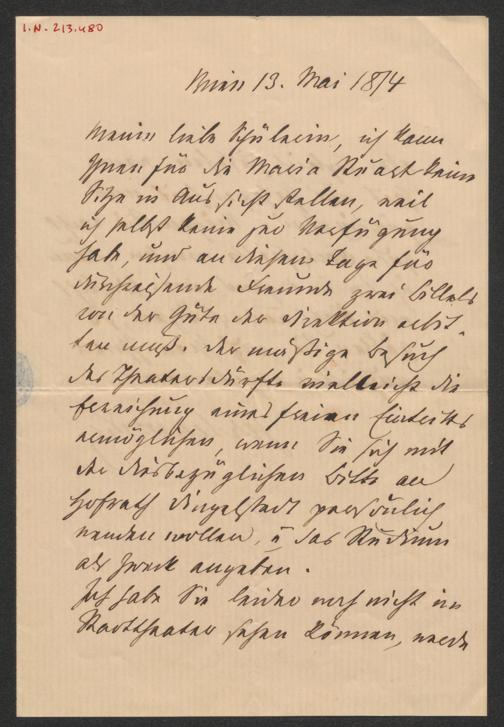 I.N. 213.480
Wien 13. Mai 1874
Meine liebe Schülerin, ich kann
Ihnen für die Maria Stuart keine
Sitze in Aussicht stellen, weil
ich selbst keine zur Verfügung
habe, und an diesem Tage für
durchreisende Freunde zwei Billets
von der Güte der Direktion erbit-
ten muß. Der mäßige Besuch
des Theaters dürfte vielleicht die
Erreichung eines freien Eintritts
ermöglichen, wenn Sie sich mit
der diesbezüglichen Bitte an
Hofrath Dingelstedt persönlich
wenden wollen, u das Studium
als Zweck angeben.
Ich habe Sie leider noch nicht im
Stadttheater sehen können, werde